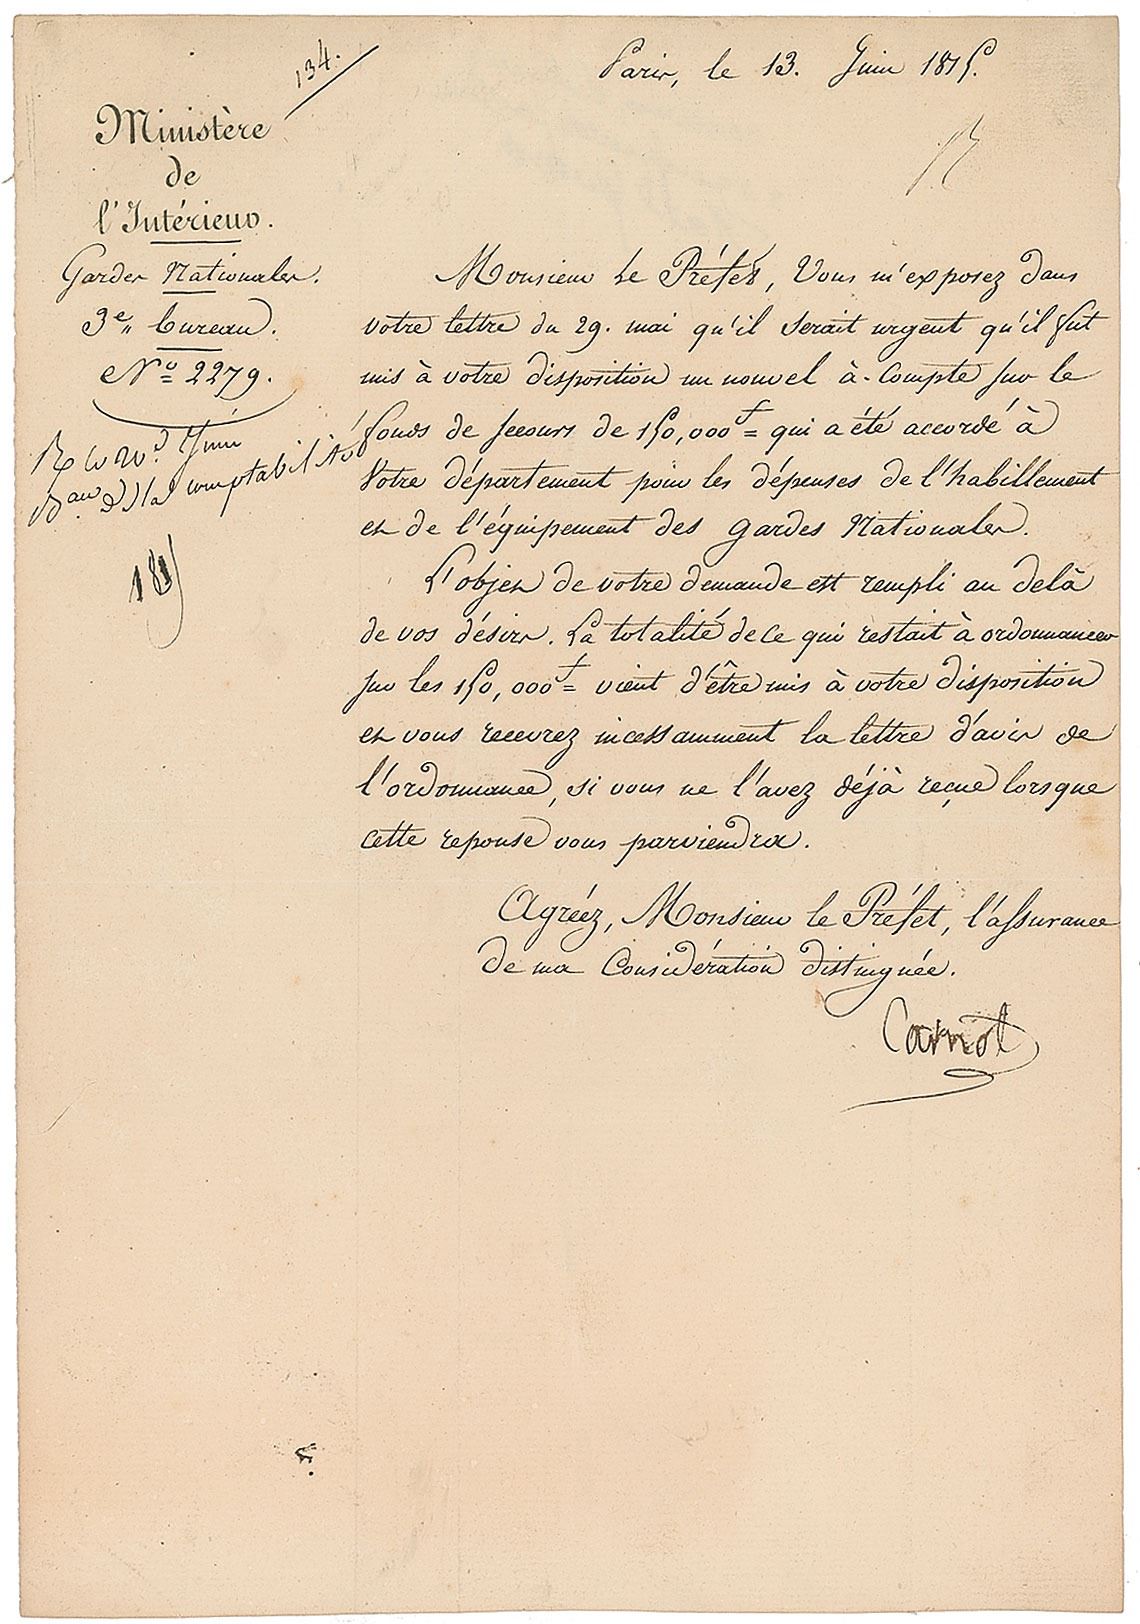 134.
Paris, le 13. Juin 1815.
Ministère
de
l'Intérieur.
Gardes Nationales.
3e bureau.
No 2279.
Juin
Bau de la comptabilité
181
Monsieur Le Préfet, Vous m'exposez dans
votre lettre du 29. mai qu'il serait urgent qu'il fut
mis à votre disposition un nouvel à-Compte sur le
fonds de secours de 150,000f= qui a été accordé à
Votre département pour les dépenses de l'habillement
et de l'équipement des gardes Nationales.
L'objet de votre demande est rempli au delà
de vos désirs. La totalité de ce qui restait à ordonnancer
sur les 150,000f= vient d'être mis à votre disposition
et vous recevrez incessamment la lettre d'avis de
l'ordonnance, si vous ne l'avez déjà reçue lorsque
cette reponse vous parviendra.
Agréez, Monsieur le Préfet, l'assurance
de ma Considération distinguée.
Carnot